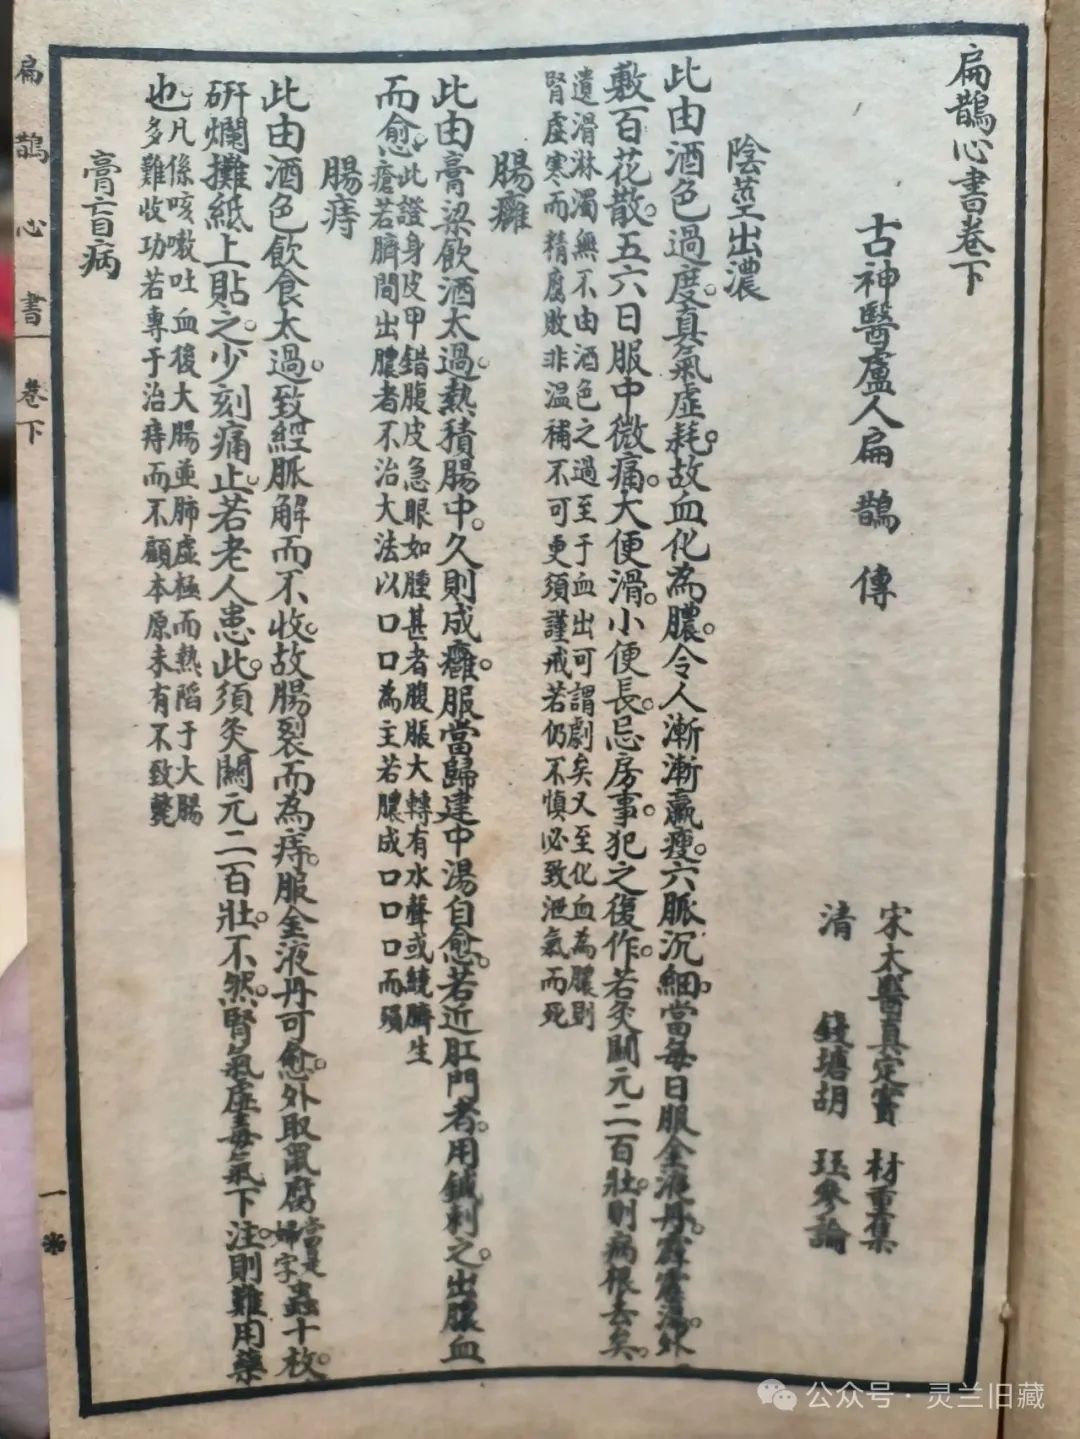 扁鵲心書卷下
古神醫盧人扁鵲傳
宋太醫真定竇材重集
清錢塘胡珏參論
陰莖出濃
此由酒色過度。真氣虛耗。故血化為膿。令人漸漸羸瘦。六脈沉細。當每日服金液丹。霹靂湯。外
敷百花散。五六日服中微痛。大便滑。小便長。忌房事。犯之復作。若灸關元二百壯。則病根去矣。
遺滑淋濁無不由酒色之過至于血出可謂劇矣又至化血為膿則
腎虛寒而精腐敗非溫補不可更須謹戒若仍不慎必致泄氣而死
腸癰
此由膏粱飲酒太過。熱積腸中。久則成癰。服當歸建中湯自愈。若近肛門者。用鍼刺之。出膿血
而愈。此證身皮甲錯腹皮急眼如腫甚者腹脹大轉有水聲或繞臍生
瘡若臍間出膿者不治大法以口口為主若膿成口口口而殞
腸痔
此由酒色飲食太過。致經脈解而不收。故腸裂而為痔。服金液丹可愈。外取鼠腐當是婦字蟲十枚。
研爛攤紙上貼之。少刻痛止。若老人患此。須灸關元二百壯。不然。腎氣虛毒氣下注。則難用藥
也。凡係咳嗽吐血後大腸並肺虛極而熱陷于大腸
多難收功若專于治痔而不顧本原未有不致斃
膏盲病
扁鵲心書 卷下 一
公众号·灵兰旧藏